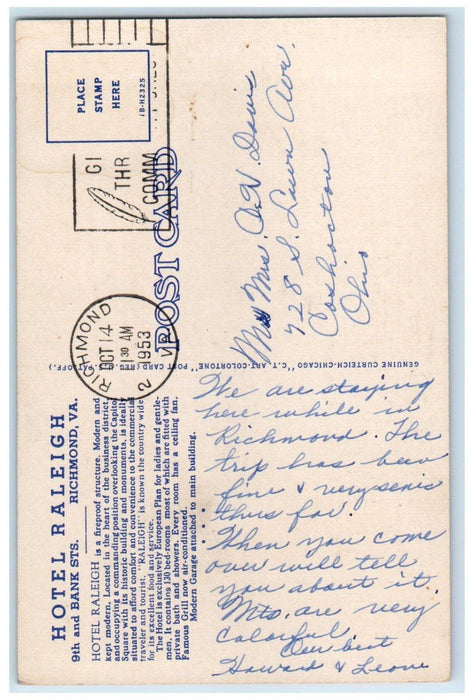 HOTEL RALEIGH
9th and BANK STS. RICHMOND, VA.
HOTEL RALEIGH is a fireproof structure. Modern and
kept modern. Located in the heart of the business district,
and occupying a commanding position overlooking the Capitol
Square with its historic building and monuments, is ideally
situated to afford comfort and convenience to the commercial
traveler and tourist. "RALEIGH" is known the country wide
for its excellent food and service.
The Hotel is exclusively European Plan for ladies and gentle-
men. It contains 130 bed-rooms most of which are fitted with
private bath and showers. Every room has a ceiling fan.
Famous Grill now air-conditioned.
Modern Garage attached to main building.
GENUINE CURTEICH-CHICAGO "C.T. ART-COLORTONE" POST CARD (REG. U.S. PAT. OFF.)
POST CARD
PLACE
STAMP
HERE
1B-H2325
RICHMOND
OCT 14
11 30 AM
1953
2
VA.
GI
THR
COMM
Mrs. A. H. Davis
728 S. Lawn Ave.
Coshocton
Ohio
We are staying
here while in
Richmond. The
trip has been
fine & very scenic
thus far.
When you come
over will tell
you about it.
Mts are very
colorful.
Our best
Howard & Leone